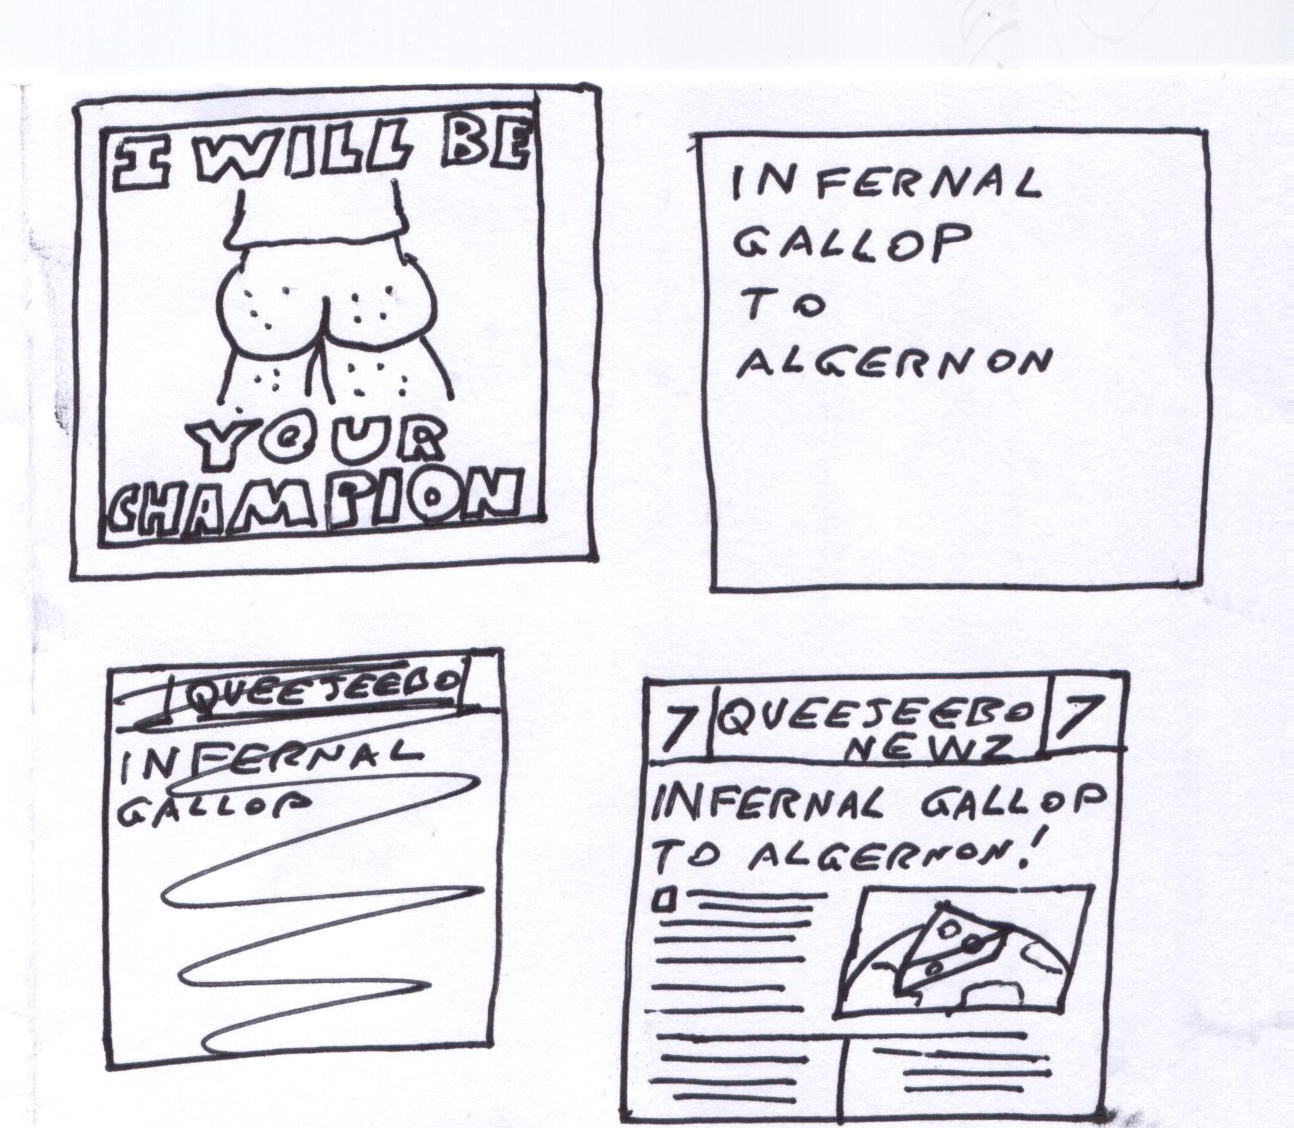 I WILL BE
YOUR
CHAMPION
INFERNAL
GALLOP
TO
ALGERNON
QUEEJEEBO
INFERNAL
GALLOP
7 QUEEJEEBO 7
NEWZ
INFERNAL GALLOP
TO ALGERNON!